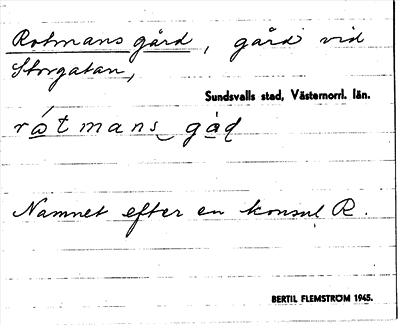 Rotmans gård, gård vid
Storgatan,
Sundsvalls stad, Västernorrl. län.
rátmans gåḍ
Namnet efter en konsul R.
BERTIL FLEMSTRÖM 1945.